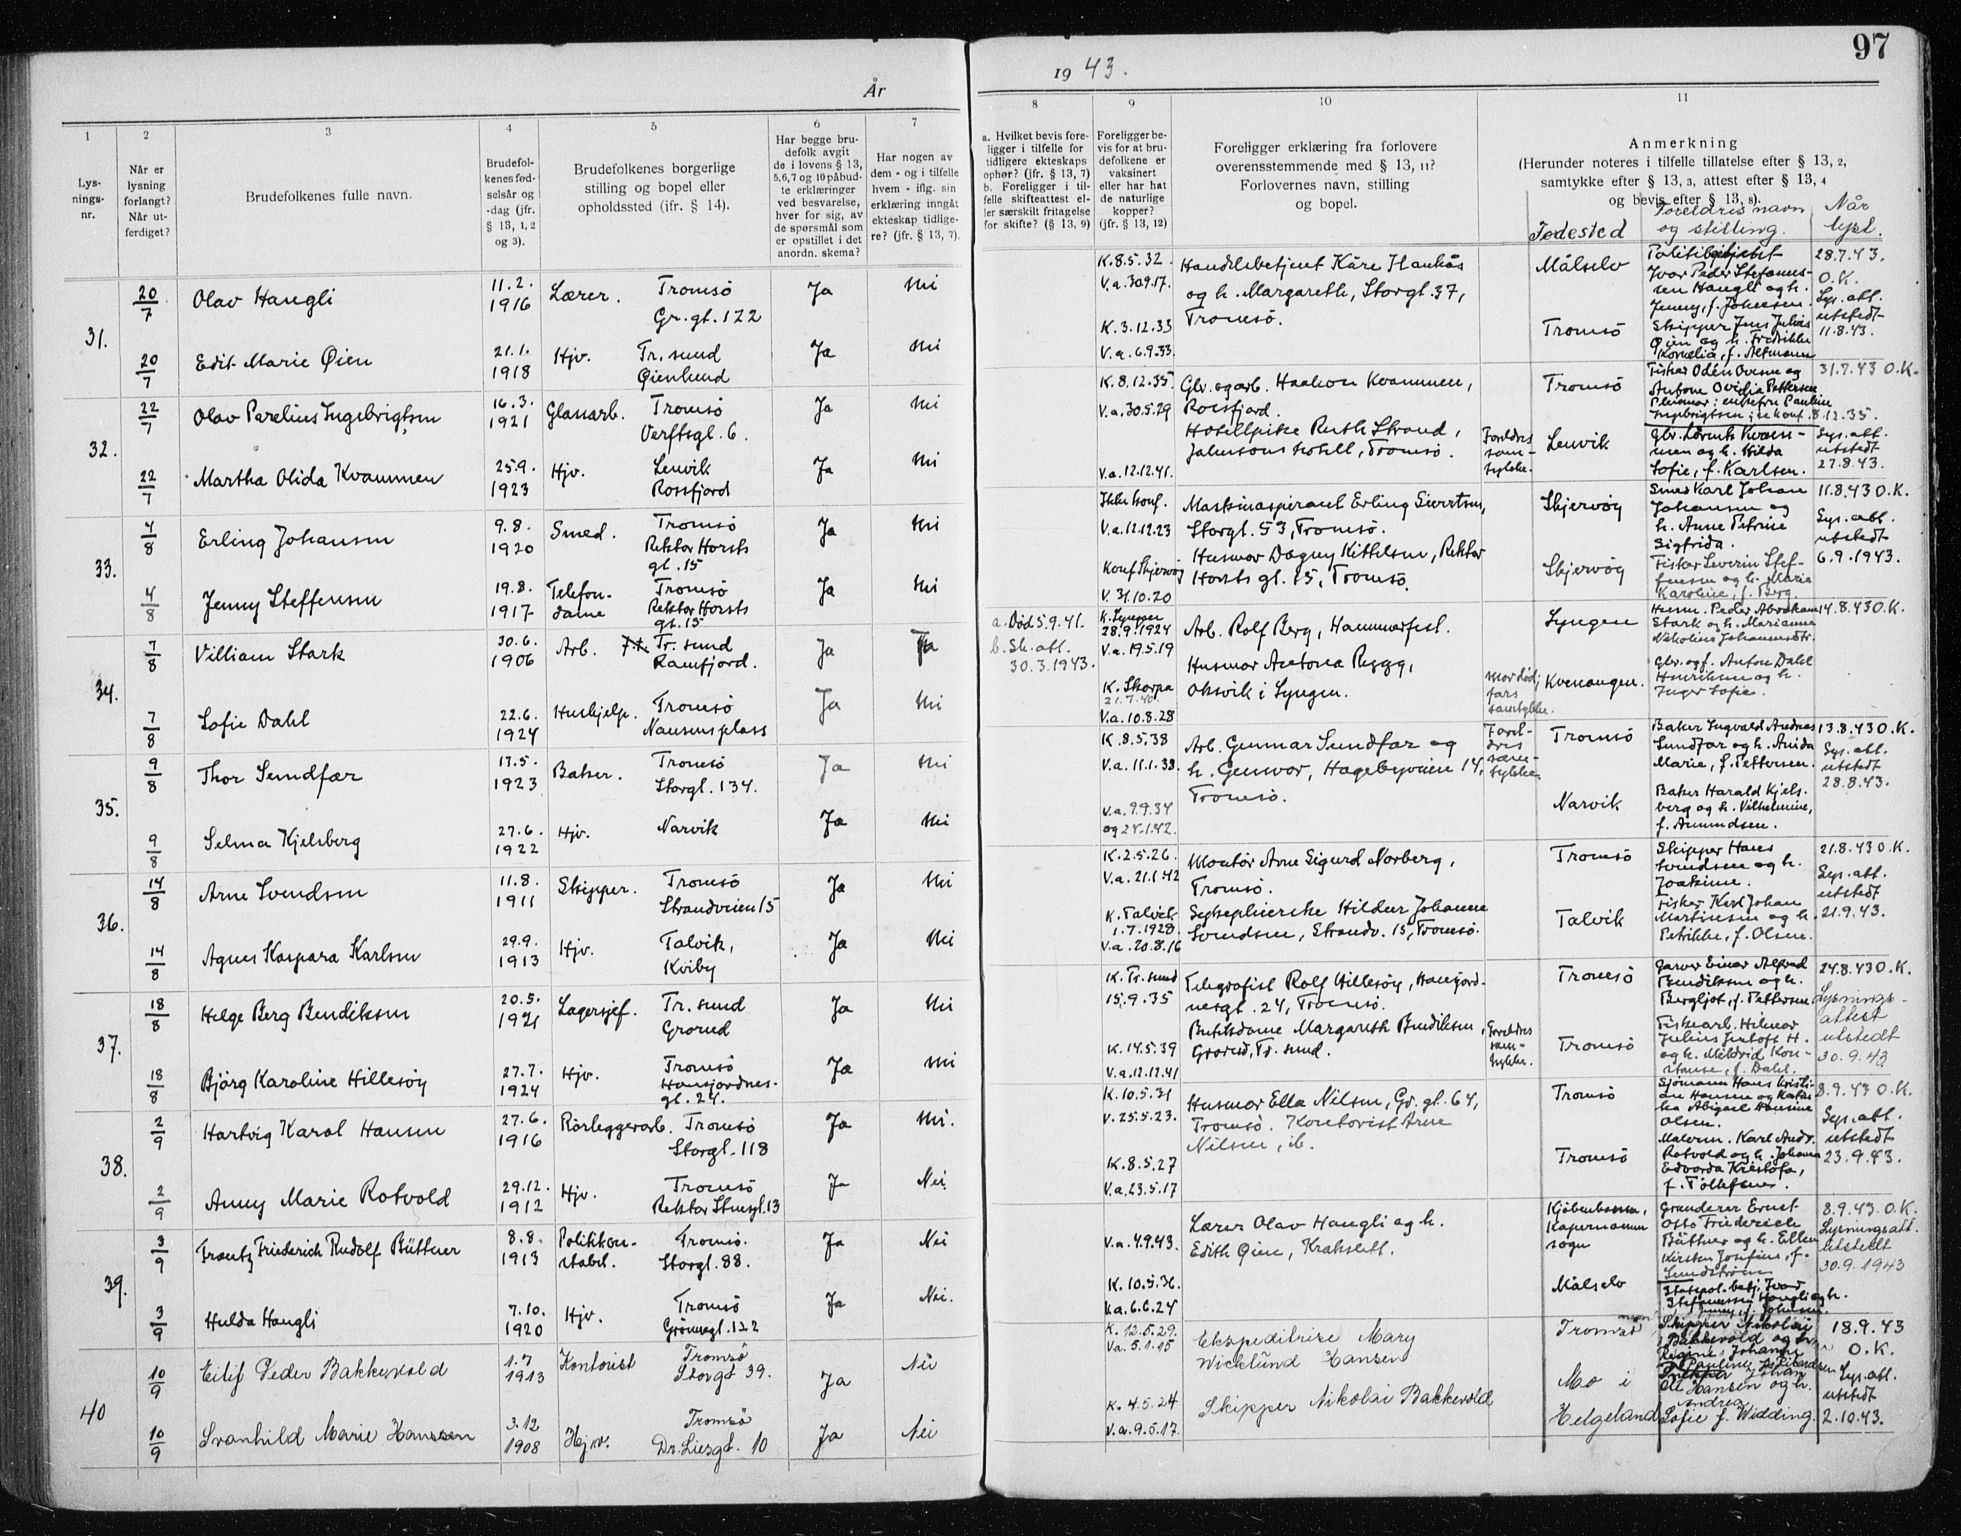 97
År 1943.
1 2 3 4 5 6 7 8 9 10 11
Lysningsnr.
Når er lysning forlangt? Når utferdiget?
Brudefolkenes fulle navn.
Brudefolkenes fødselsår og -dag (jfr. § 13, 1, 2 og 3).
Brudefolkenes borgerlige stilling og bopel eller opholdssted (ifr. § 14).
Har begge brudefolk avgit de i lovens § 13, 5, 6, 7 og 10 påbudte erklæringer ved besvarelse, hver for sig, av de spørsmål som er opstillet i det anordn. skema?
Har nogen av dem - og i tilfelle hvem - iflg. sin erklæring inngåt ekteskap tidligere? (jfr. § 13, 7).
a. Hvilket bevis foreligger i tilfelle for tidligere ekteskaps ophør? (jfr. § 13, 7) b. Foreligger i tilfelle skifteattest eller særskilt fritagelse for skifte? (§ 13, 9)
Foreligger bevis for at brudefolkene er vaksinert eller har hat de naturlige kopper? (jfr. § 13, 12)
Foreligger erklæring fra forlovere overensstemmende med § 13, 11? Forlovernes navn, stilling og bopel.
Anmerkning
(Herunder noteres i tilfelle tillatelse efter § 13, 2, samtykke efter § 13, 3, attest efter § 13, 4 og bevis efter § 13, 8).
Fødested
Foreldres navn og stilling.
Når lyst.
31.
20/7 Olav Haugli 11.2. 1916 Lærer. Tromsö Gr.gt. 122 Ja Nei
K. 8.5.32. V.a. 30.9.17. Handelsbetjent Kåre Haukås og h. Margareth, Storgt. 37, Tromsö.
Målselv Politibetjent Ivar Peder Stefanussen Haugli og h. Jenny, f. Johansen. 28.7.43. O.K. Lys.att. utstedt 11.8.43.
20/7 Edit Marie Øien 21.1. 1918 Hjv. Tr.sund Øienlund Ja Nei
K. 3.12.33 V.a. 6.9.33.
Tromsö Skipper Jens Julius Øien og h. Fredrikke Kornelia, f. Altmann
32.
22/7 Olav Parelius Ingebrigtsen 16.3. 1921 Glassarb. Tromsö Verftsgt. 6. Ja Nei
K. 8.12.35 V.a. 30.5.29 Gbr. og arb. Haakon Kvammen, Rossfjord.
Tromsö Fisker Odén Ovesen og Antone Ovidia Pettersen 31.7.43 O.K.
22/7 Martha Olida Kvammen 25.9. 1923 Hjv. Lenvik Rossfjord Ja Nei
V.a. 12.12.41. Hotellpike Ruth Strand, Johnsons hotell, Tromsö. Foreldres samtykke.
Lenvik Gbr. Lorents Kvammen og h. Hilda Sofie, f. Karlsen. Lys.att. utstedt 27.8.43.
33.
4/8 Erling Johansen 9.8. 1920 Smed. Tromsö Rektor Horsts gt. 15 Ja Nei
Ikke konf. V.a. 12.12.23 Maskinaspirant Erling Sivertsen, Storgt. 53, Tromsö.
Skjervöy Smed Karl Johan Johansen og h. Anne Petrine Sigfrida. 11.8.43 O.K. Lys.att. utstedt 6.9.1943.
4/8 Jenny Steffensen 19.8. 1917 Telefondame Tromsö Rektor Horsts gt. 15 Ja Nei
Konf. Skjervöy V. 31.10.20 Husmor Dagny Kittelsen, Rektor Horsts gt. 15, Tromsö.
Skjervöy Fisker Severin Steffensen og h. Marie Karoline, f. Berg.
34.
7/8 Villiam Stark 30.6. 1906 Arb. Tr.sund Ramfjord. Ja Ja
a. Död 5.9.41. b. Sk.att. 30.3.1943. K. Lyngen 28.9.1924 V.a. 19.5.19 Arb. Rolf Berg, Hammerfest.
Lyngen Husm. Peder Abraham Stark og h. Marianna Nikoline Johannesdtr. 14.8.43 O.K.
7/8 Sofie Dahl 22.6. 1924 Hushjelp. Tromsö Nansensplass Ja Nei
K. Skorpa 21.7.40. V.a. 10.8.28 Husmor Antona Rygg, Oksvik i Lyngen. Mor död, fars samtykke.
Kvenangen. Gbr. og f. Anton Dahl Henriksen og h. Inger Sofie.
35.
9/8 Thor Sundfær 17.5. 1923 Baker. Tromsö Storgt. 134. Ja Nei
K. 8.5.38 V.a. 11.1.38. Arb. Gunnar Sundfær og h. Gunvor, Hagebyveien 14, Tromsö. Foreldres samtykke
Tromsö Baker Ingvald Andreas Sundfær og h. Anida Marie, f. Pettersen. 13.8.43 O.K. Lys.att. utstedt 28.8.43.
9/8 Selma Kjelsberg 27.6. 1922 Hjv. Narvik Ja Nei
V.a. 9.9.34 og 24.1.42.
Narvik Baker Harald Kjelsberg og h. Vilhelmine, f. Amundsen.
36.
14/8 Arne Svendsen 11.8. 1911 Skipper. Tromsö Strandveien 15 Ja Nei
K. 2.5.26. V.a. 21.1.42 Montör Arne Sigurd Norberg, Tromsö.
Tromsö Skipper Hans Svendsen og h. Joakime. 21.8.43 O.K. Lys.att. utstedt 21.9.43.
14/8 Agnes Kaspara Karlsen 29.9. 1913 Hjv. Talvik, Kviby Ja Nei
K. Talvik 1.7.1928. V.a. 20.8.16 Sykepleierske Hildur Johanne Svendsen, Strandv. 15, Tromsö.
Talvik Fisker Karl Johan Martinsen og h. Petrikke, f. Olsen.
37.
18/8 Helge Berg Bendiksen 20.5. 1921 Lagersjef. Tr.sund Grorud Ja Nei
K. Tr.sund 15.9.35 Telegrafist Rolf Hillesöy, Hansjordnesgt. 24, Tromsö.
Tromsö Garver Einar Alfred Bendiksen og h. Bergljot, f. Pettersen 24.8.43 O.K. Lysningsattest utstedt 30.9.43
18/8 Björg Karoline Hillesöy 27.7. 1924 Hjv. Tromsö Hansjordnesgt. 24. Ja Nei
K. 14.5.39 V.a. 12.12.41 Butikkdame Margareth Bendiksen, Grorud, Tr.sund. Foreldres samtykke.
Tromsö Fiskearb. Hilmar Julius Justoft H. og h. Mildrid Konstanse, f. Dahl.
38.
2/9 Hartvig Karol Hansen 27.6. 1916 Rörleggerarb. Tromsö Storgt. 118 Ja Nei.
K. 10.5.31 V. 25.5.23. Husmor Ella Nilsen, Gr.gt. 64, Tromsö. Kontorist Arne Nilsen, ib.
Tromsö Sjömann Hans Kristian Hansen og Katarina Abigael Hansine Olsen. 8.9.43 O.K. Lys.att. utstedt 23.9.43.
2/9 Anny Marie Rotvold 29.12. 1912 Hjv. Tromsö Rektor Steensgt. 13 Ja Nei.
K. 8.5.27 V.a. 23.5.17
Tromsö Malerm. Karl Andr. Rotvold og h. Johanna Edvarda Kristofa, f. Tollefsen.
39.
3/9 Frantz Friederich Rudolf Büttner 8.8. 1913 Politikonstabel. Tromsö. Storgt. 88. Ja Nei
V.a. 4.9.43. Lærer Olav Haugli og h. Edith Øien, Krakslett.
Kjöbenhavn, Kapernaum sogn Granderer Ernst Otto Friederich Büttner og h. Ellen Kirsten Josefine, f. Sundström 8.9.43. O.K. Lysningsatt. utstedt 30.9.1943
3/9 Hulda Haugli 7.10. 1920 Hjv. Tromsö Grönnegt. 122 Ja Nei.
K. 10.5.36. V.a. 6.6.24
Målselv Statspol.betj. Ivar Stefanussen Haugli og h. Jenny, f. Johansen.
40
10/9 Eilif Peder Bakkevold 1.7 1913 Kontorist Tromsö Storgt 39. Ja Nei
K. 12.5.29. Va. 5.1.15 Ekspeditrise Mary Wicklund Hansen
Tromsö Skipper Nikolai Bakkevold og Regine Johanne 18.9.43 O.K.
10/9 Svanhild Marie Hansen 3.12 1908 Hjv. Tromsö Dr. Liesgt. 10 Ja Nei
K. 4.5.24 V.a. 9.5.17. Skipper Nikolai Bakkevold
Mo i Helgeland Johan Hansen og h. Andrea Sofie f. Widding. Lys.att. utstedt 2.10.43.